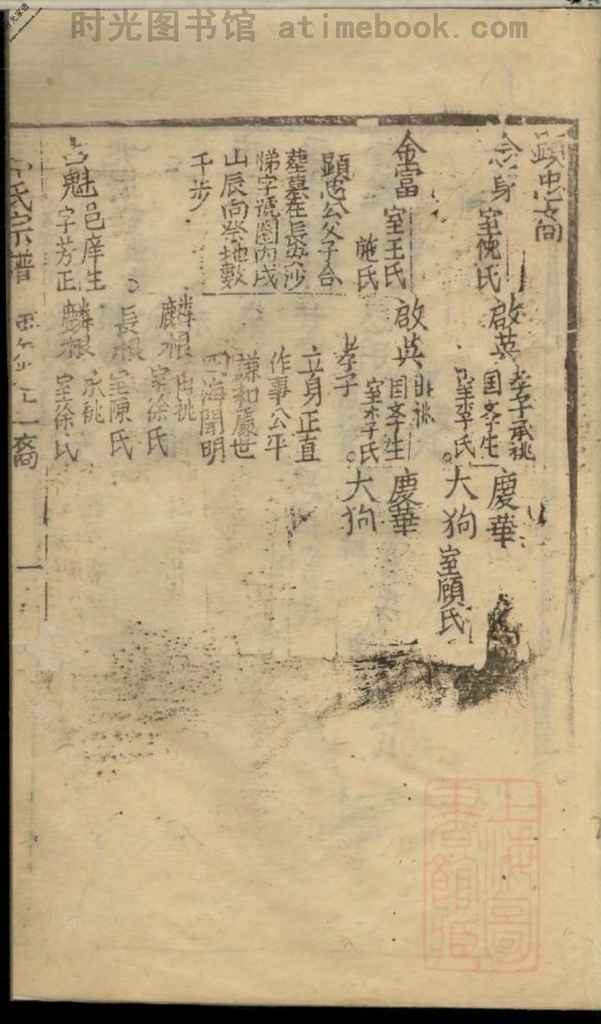 时光图书馆 atimebook.com
顕忠裔
念身 室倪氏
啟英 孝子承祧
国孝生
室李氏
慶華
大狗 室顧氏
金富 室王氏
施氏
啟英
国孝生
室李氏
慶華
大狗
孝子
顕忠公父子合
塟墓在長
悌字號圍丙戌
山辰向祭地數
千步
立身正直
作事公平
謙和處世
四海聞明
魁 邑庠生
字芳正
麟根 承祧
室徐氏
長根 室陳氏
麟根 祧
室徐氏
氏宗譜
裔
一
上海圖書館藏